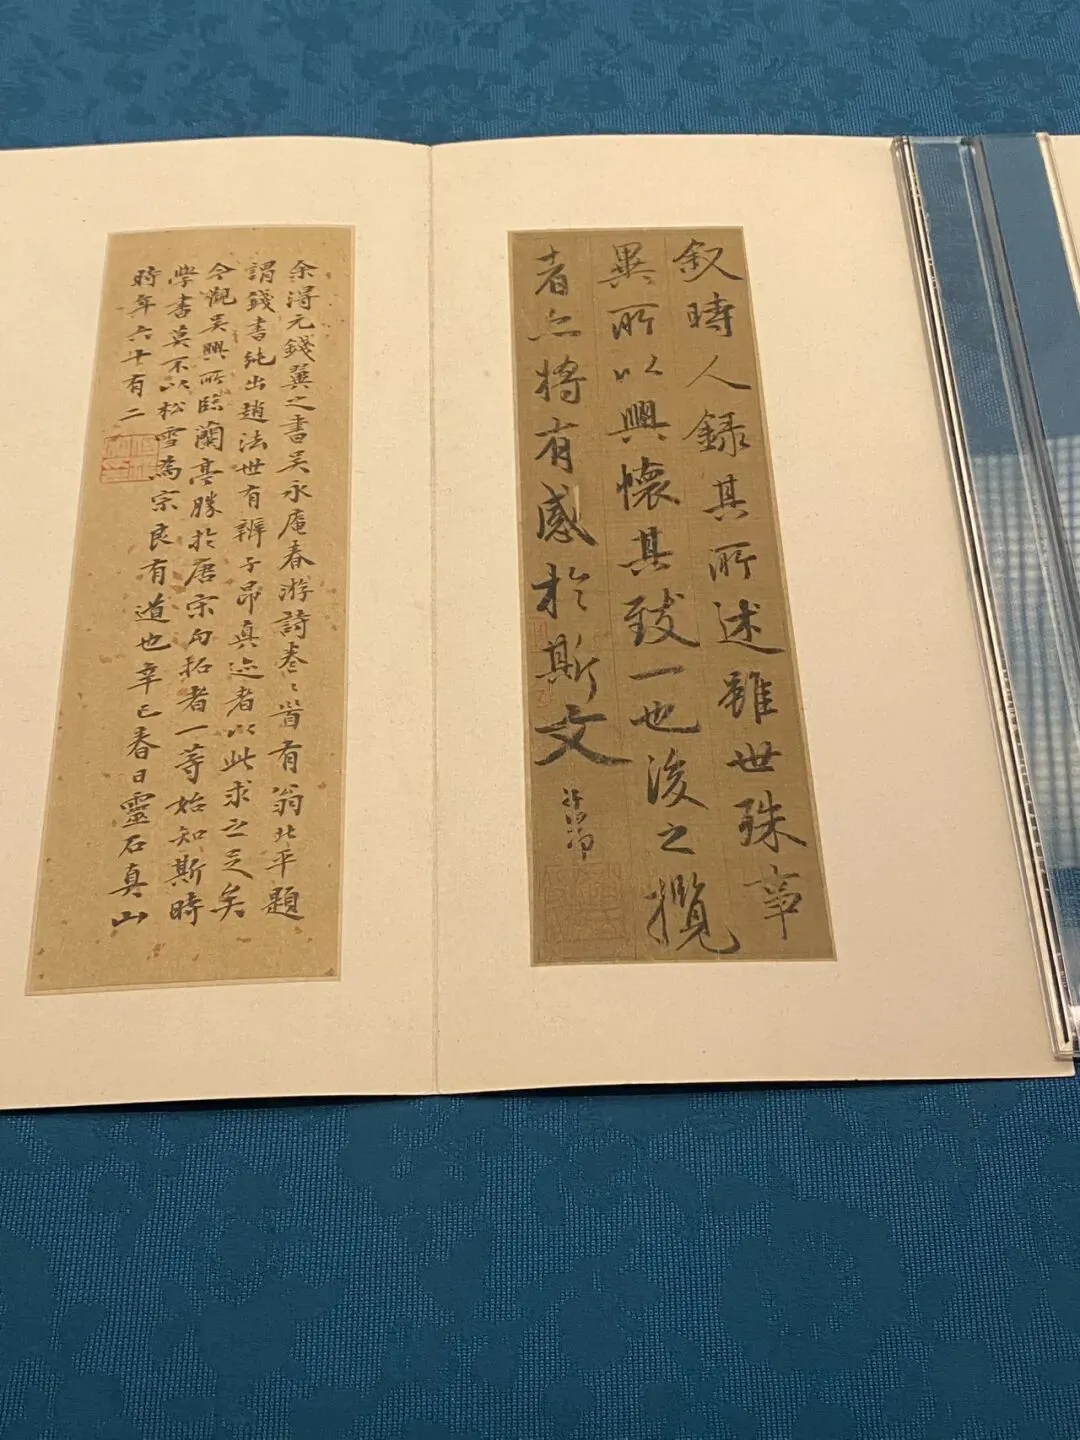 叙時人録其所述雖世殊事
異所以興懷其致一也後之攬
者亦将有感於斯文
子昂
余得元錢翼之書吴永庵春游詩卷〻首有翁北平題
謂錢書純出趙法世有辨子昂真迹者以此求之足矣
今觀吴興所臨蘭亭勝於唐宋勾拓者一等始知斯時
學書莫不以松雪為宗良有道也辛巳春日靈石真山
時年六十有二